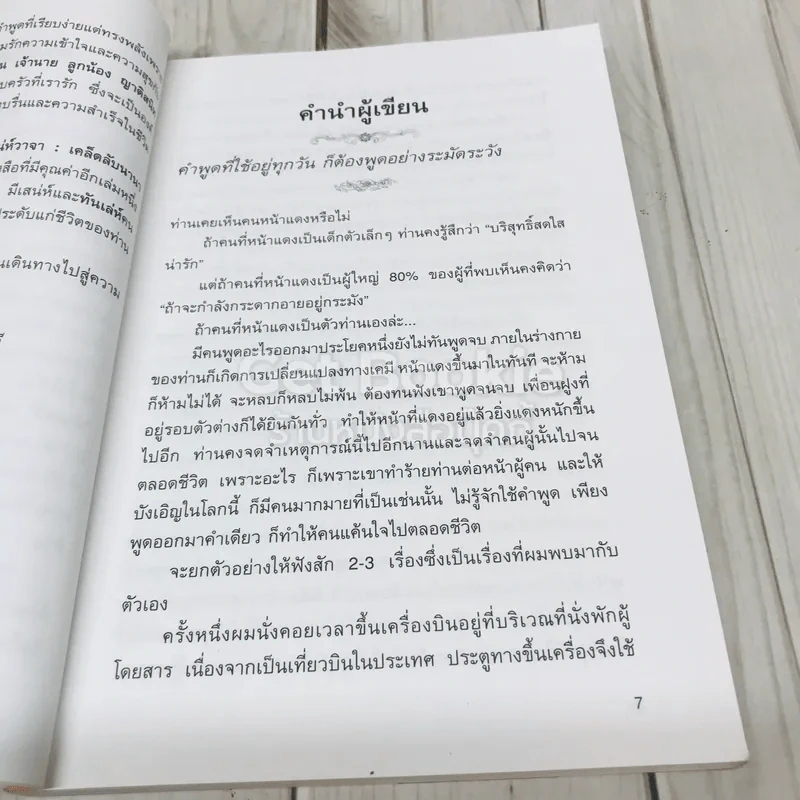 คำพูดที่เรียบง่ายแต่ทรงพลัง
รักความเข้าใจและความ
เจ้านาย ลูกน้อง
ครัวที่เรารัก ซึ่งจะเป็น
รื่นและความสำเร็จในชีวิต
เสน่ห์วาจา : เคล็ดลับนานา
สือที่มีคุณค่าอีกเล่มหนึ่ง
มีเสน่ห์และทันเล่ห์คน
ระดับแก่ชีวิตของท่าน
นเดินทางไปสู่ความ
คำนำผู้เขียน
คำพูดที่ใช้อยู่ทุกวัน ก็ต้องพูดอย่างระมัดระวัง
ท่านเคยเห็นคนหน้าแดงหรือไม่
ถ้าคนที่หน้าแดงเป็นเด็กตัวเล็กๆ ท่านคงรู้สึกว่า “บริสุทธิ์สดใส
น่ารัก”
แต่ถ้าคนที่หน้าแดงเป็นผู้ใหญ่ 80% ของผู้ที่พบเห็นคงคิดว่า
“ถ้าจะกำลังกระดากอายอยู่กระมัง”
ถ้าคนที่หน้าแดงเป็นตัวท่านเองล่ะ...
มีคนพูดอะไรออกมาประโยคหนึ่งยังไม่ทันพูดจบ ภายในร่างกาย
ของท่านก็เกิดการเปลี่ยนแปลงทางเคมี หน้าแดงขึ้นมาในทันที จะห้าม
ก็ห้ามไม่ได้ จะหลบก็หลบไม่พ้น ต้องทนฟังเขาพูดจนจบ เพื่อนฝูงที่
อยู่รอบตัวต่างก็ได้ยินกันทั่ว ทำให้หน้าที่แดงอยู่แล้วยิ่งแดงหนักขึ้น
ไปอีก ท่านคงจดจำเหตุการณ์นี้ไปอีกนานและจดจำคนผู้นั้นไปจน
ตลอดชีวิต เพราะอะไร ก็เพราะเขาทำร้ายท่านต่อหน้าผู้คน และให้
บังเอิญในโลกนี้ ก็มีคนมากมายที่เป็นเช่นนั้น ไม่รู้จักใช้คำพูด เพียง
พูดออกมาคำเดียว ก็ทำให้คนแค้นใจไปตลอดชีวิต
จะยกตัวอย่างให้ฟังสัก 2-3 เรื่องซึ่งเป็นเรื่องที่ผมพบมากับ
ตัวเอง
ครั้งหนึ่งผมนั่งคอยเวลาขึ้นเครื่องบินอยู่ที่บริเวณที่นั่งพักผู้
โดยสาร เนื่องจากเป็นเที่ยวบินในประเทศ ประตูทางขึ้นเครื่องจึงใช้
7